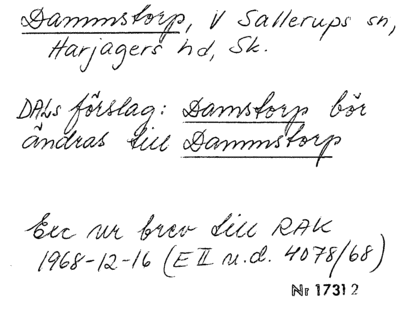 Dammstorp, V Sallerups sn,
Harjagers hd, Sk.
DALs förslag: Damstorp bör
ändras till Dammstorp
Exc ur brev till RAK
1968-12-16 (E II u.d. 4078/68)
Nr 17312